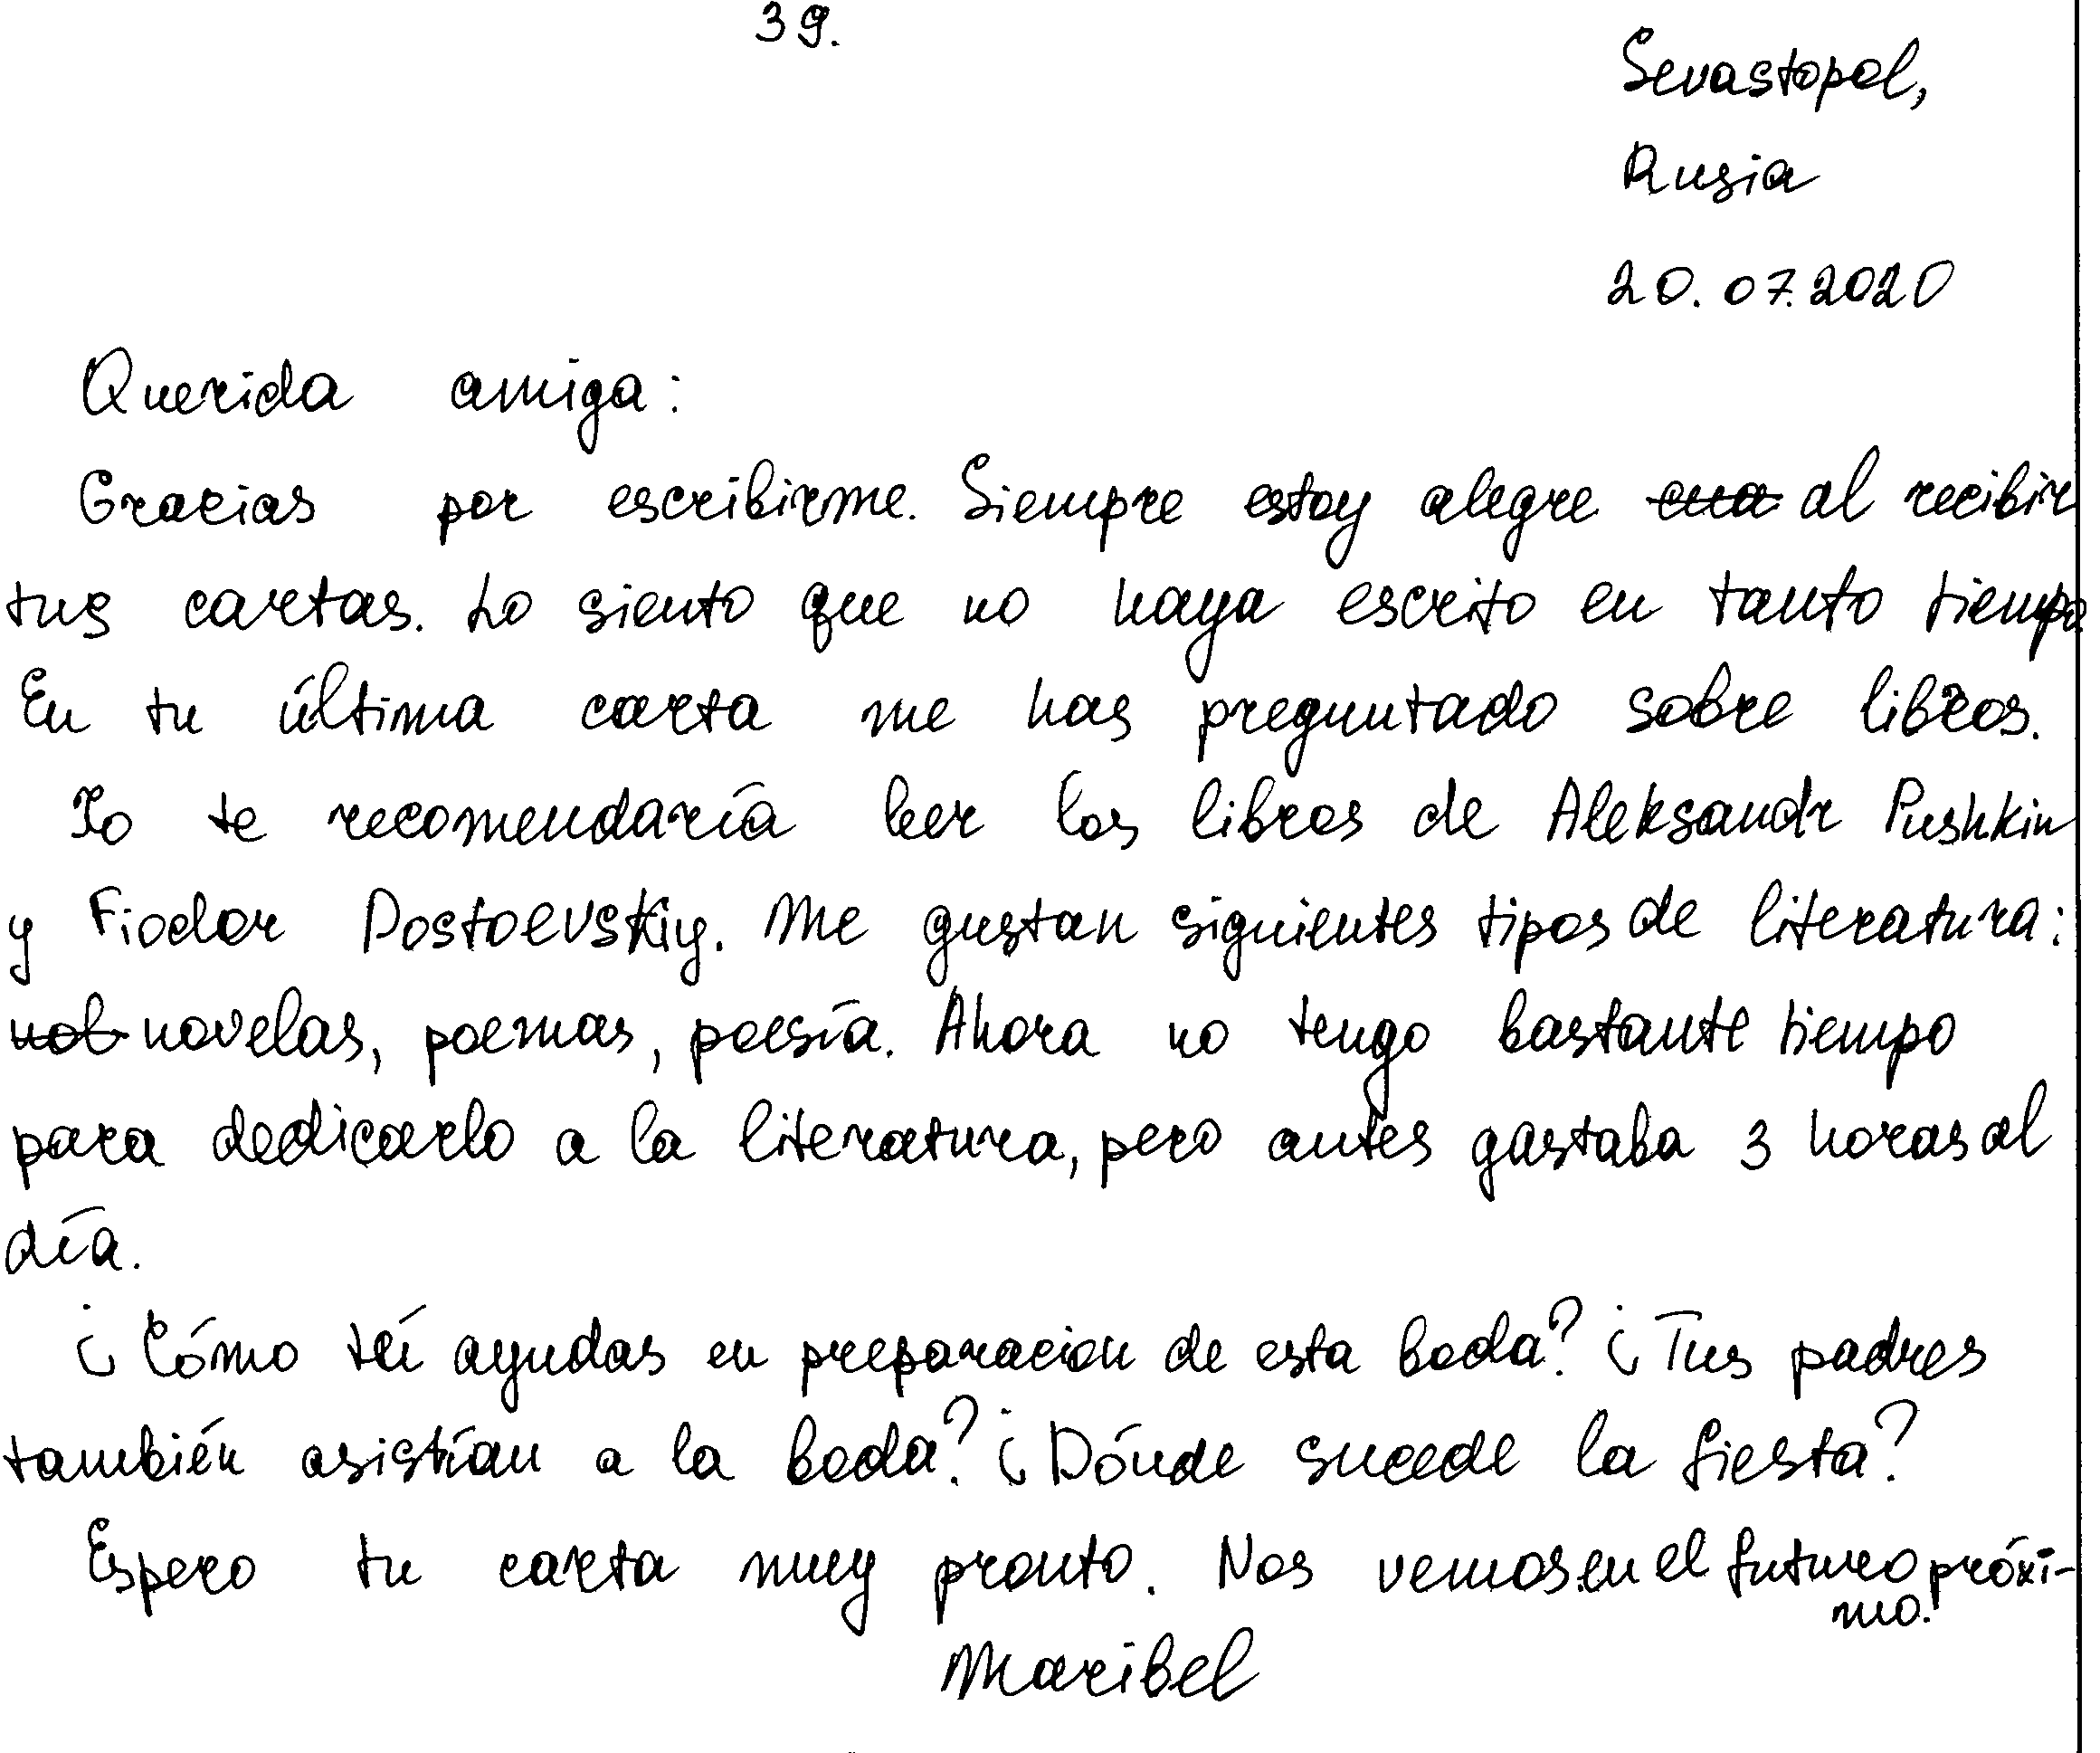 39.
Sevastopol,
Rusia
20.07.2020
Querida amiga:
Gracias por escribirme. Siempre estoy alegre al recibir
tus cartas. Lo siento que no haya escrito en tanto tiempo.
En tu última carta me has preguntado sobre libros.
Yo te recomendaría leer los libros de Aleksandr Pushkin
y Fiodor Dostoevskiy. Me gustan siguientes tipos de literatura:
novelas, poemas, poesía. Ahora no tengo bastante tiempo
para dedicarlo a la literatura, pero antes gastaba 3 horas al
día.
¿Cómo tú ayudas en preparacion de esta boda? ¿Tus padres
también asistían a la boda? ¿Dónde sucede la fiesta?
Espero tu carta muy pronto. Nos vemos en el futuro próxi-
mo.
Maribel